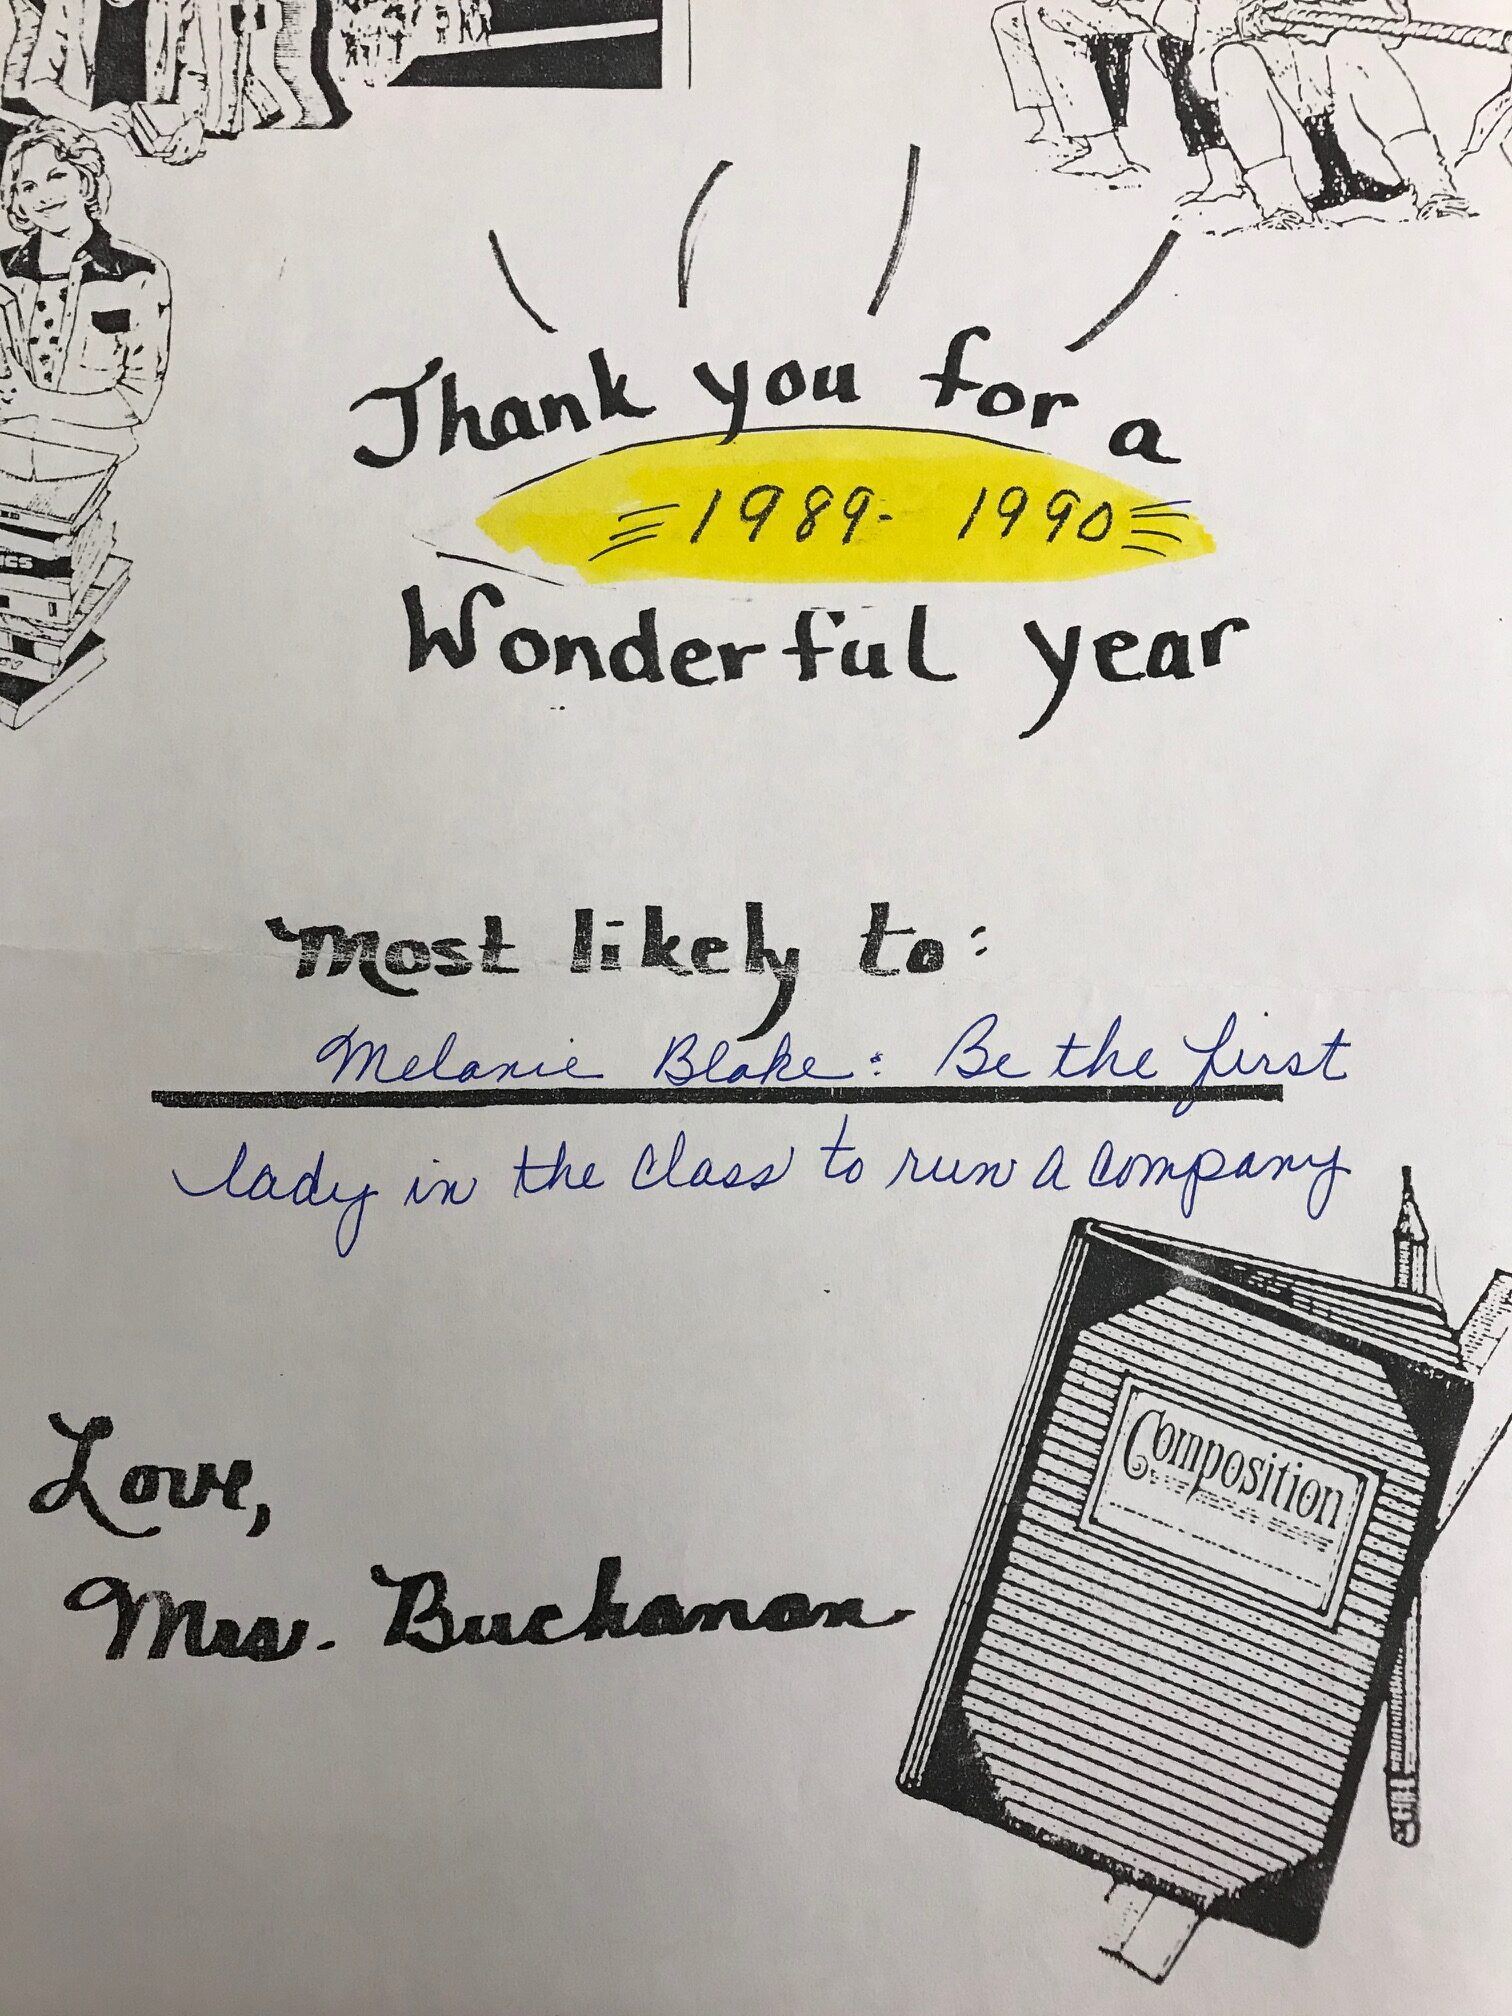 Thank you for a
1989- 1990
Wonderful year
Most likely to:
Melanie Blake: Be the first
lady in the class to run a company
Love,
Mrs. Buchanan
Composition